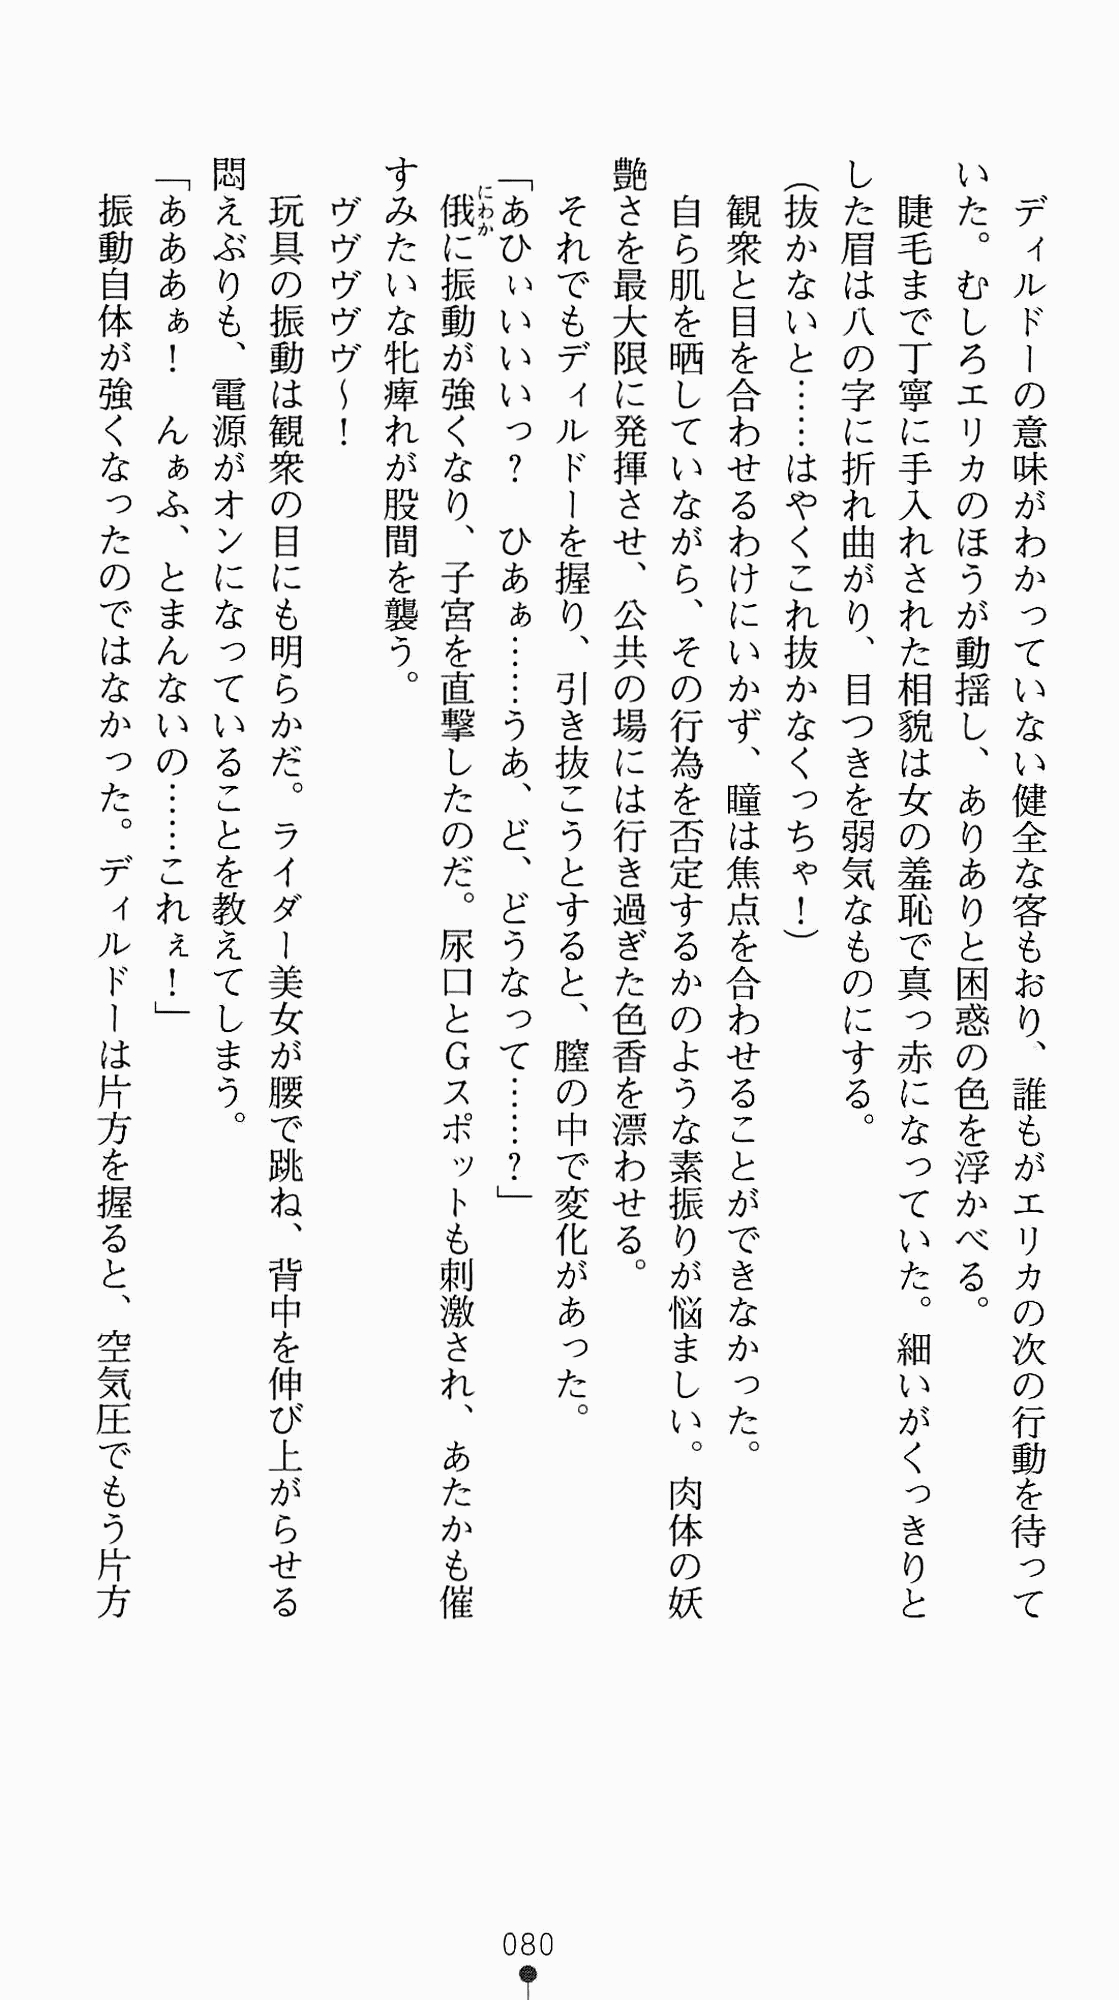 ディルドーの意味がわかっていない健全な客もおり、誰もがエリカの次の行動を待って
いた。むしろエリカのほうが動揺し、ありありと困惑の色を浮かべる。
睫毛まで丁寧に手入れされた相貌は女の羞恥で真っ赤になっていた。細いがくっきりと
した眉は八の字に折れ曲がり、目つきを弱気なものにする。
(抜かないと……はやくこれ抜かなくっちゃ！)
観衆と目を合わせるわけにいかず、瞳は焦点を合わせることができなかった。
自ら肌を晒していながら、その行為を否定するかのような素振りが悩ましい。肉体の妖
艶さを最大限に発揮させ、公共の場には行き過ぎた色香を漂わせる。
それでもディルドーを握り、引き抜こうとすると、膣の中で変化があった。
「あひぃいいいっ？　ひあぁ……うあ、ど、どうなって……？」
俄に振動が強くなり、子宮を直撃したのだ。尿口とGスポットも刺激され、あたかも催
にわか
すみたいな牝痺れが股間を襲う。
ヴヴヴヴヴ～！
玩具の振動は観衆の目にも明らかだ。ライダー美女が腰で跳ね、背中を伸び上がらせる
悶えぶりも、電源がオンになっていることを教えてしまう。
「あああぁ！　んぁふ、とまんないの……これぇ！」
振動自体が強くなったのではなかった。ディルドーは片方を握ると、空気圧でもう片方
080